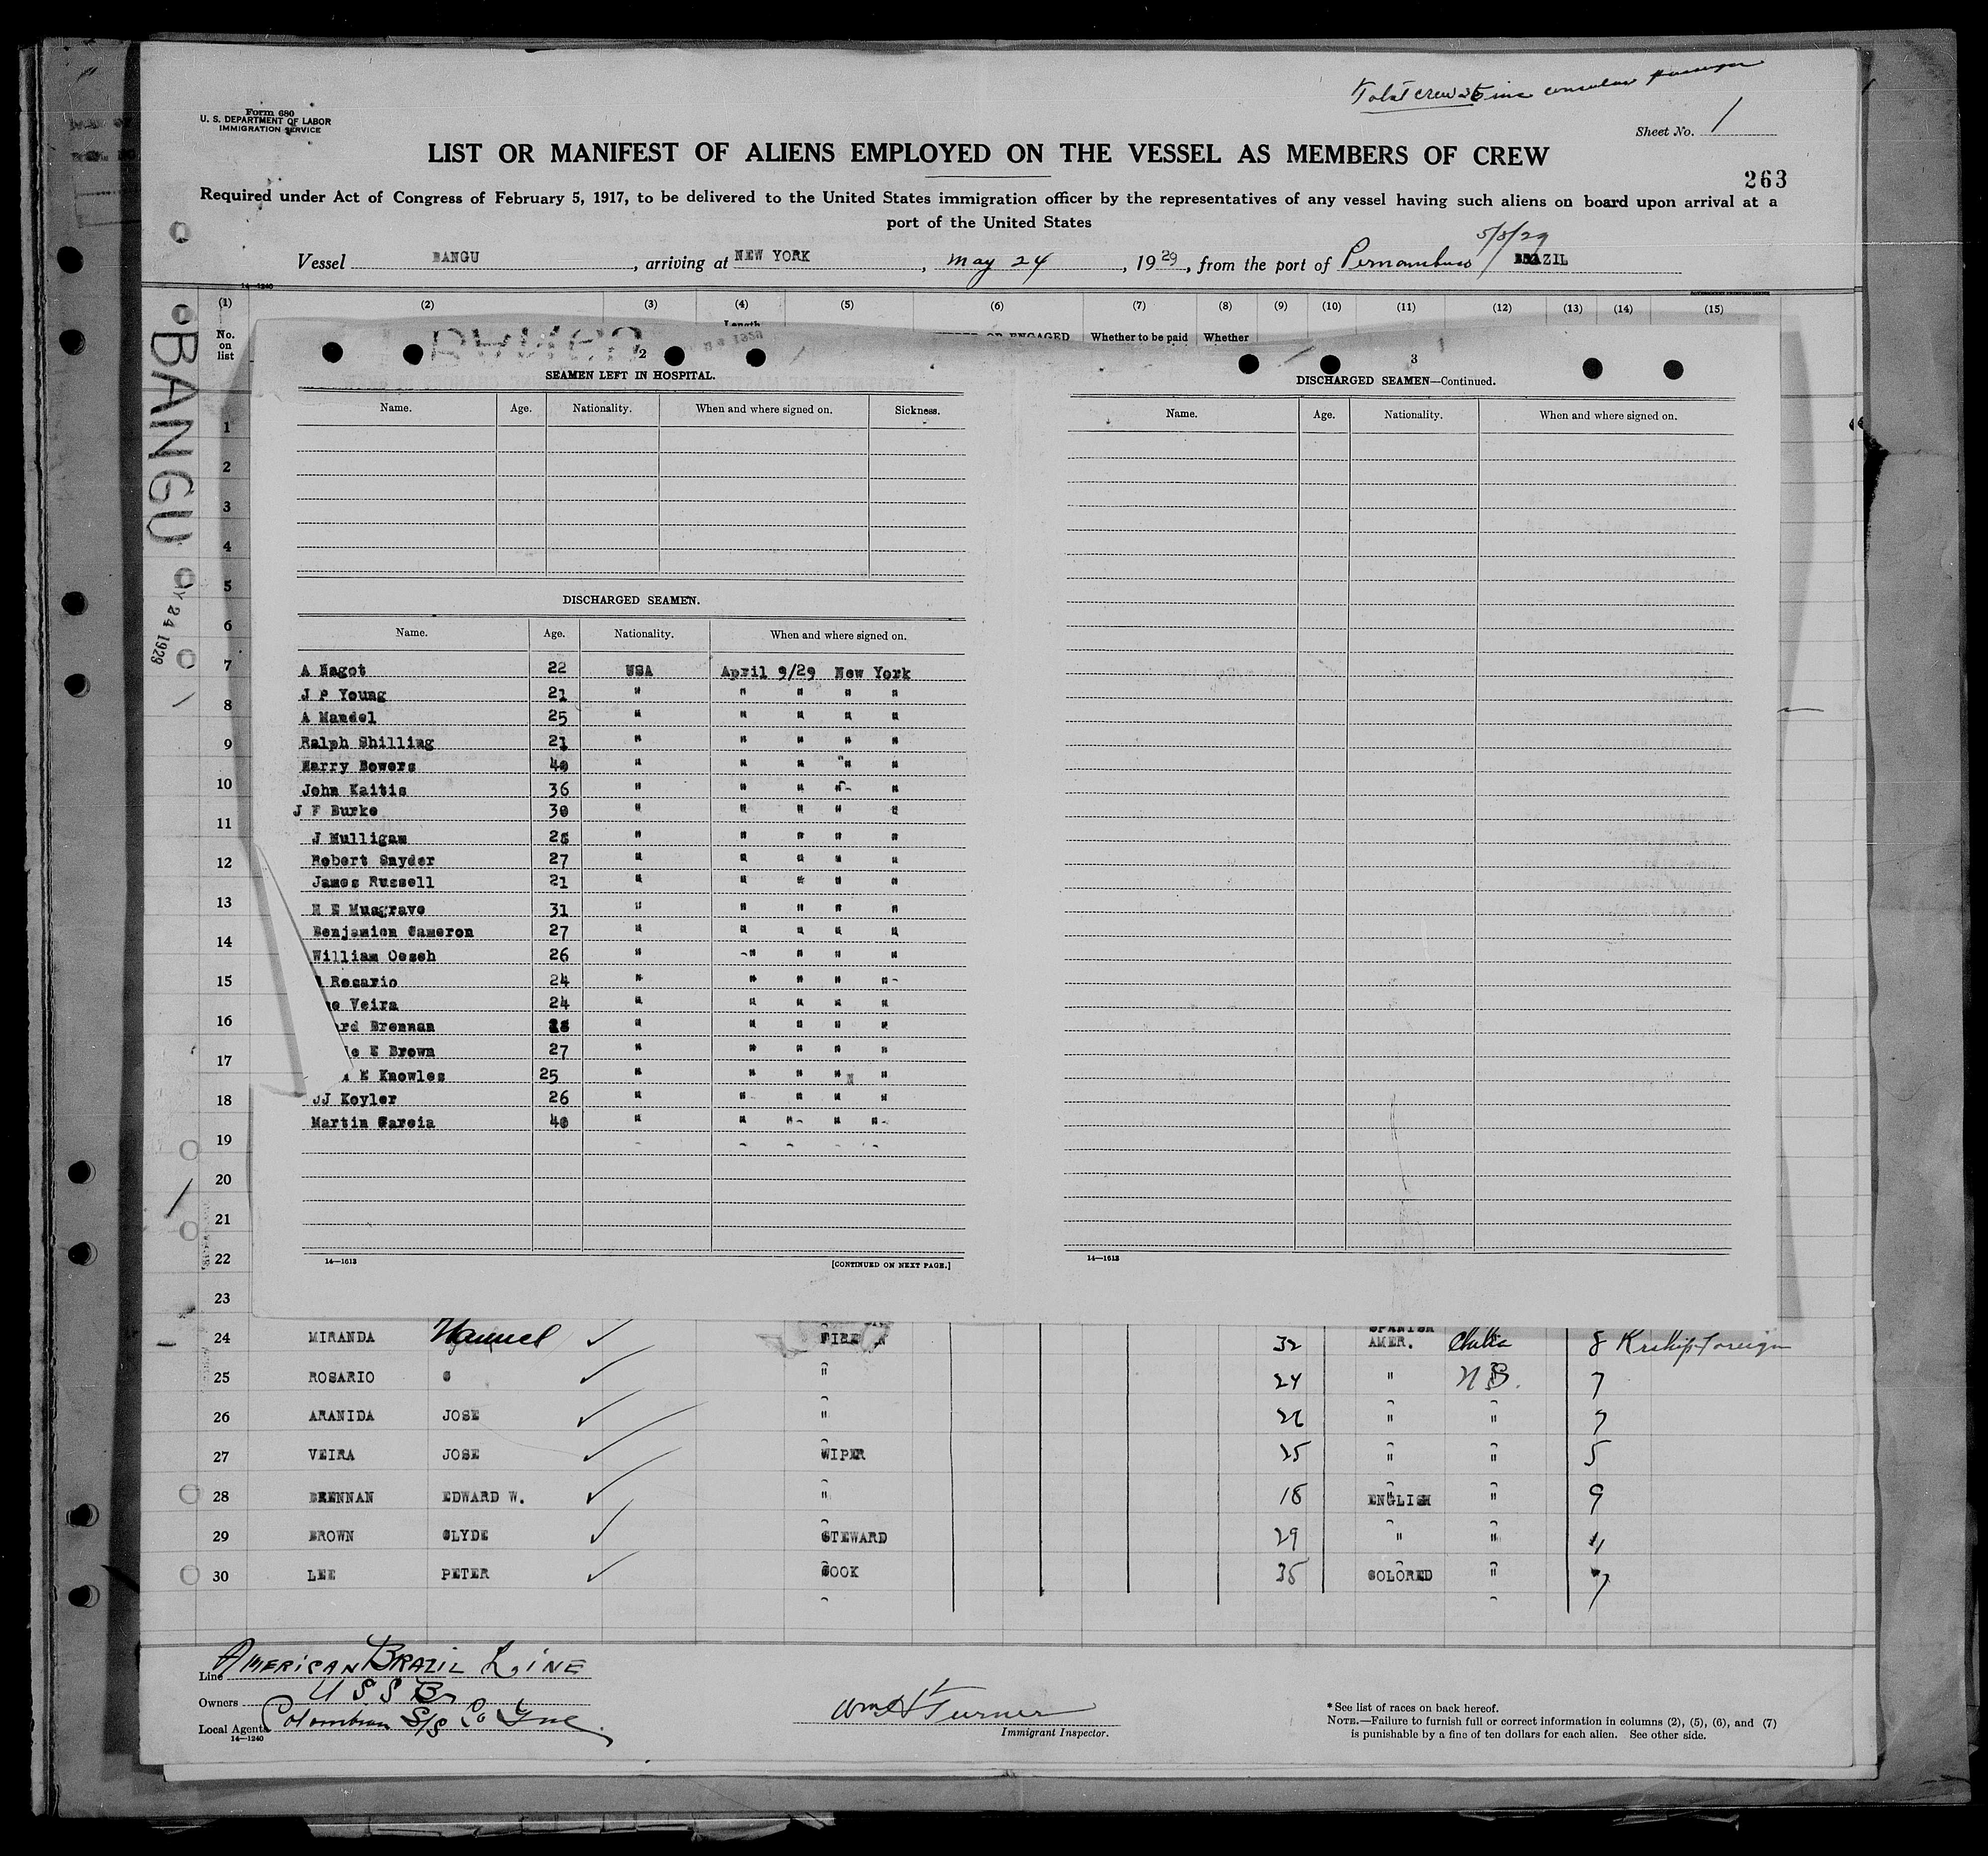 Total crew 35 inc consular passenger
Form 680
U. S. DEPARTMENT OF LABOR
IMMIGRATION SERVICE
Sheet No. 1
LIST OR MANIFEST OF ALIENS EMPLOYED ON THE VESSEL AS MEMBERS OF CREW
263
Required under Act of Congress of February 5, 1917, to be delivered to the United States immigration officer by the representatives of any vessel having such aliens on board upon arrival at a
port of the United States
5/8/29
Vessel BANGU, arriving at NEW YORK, May 24, 1929, from the port of Pernambuco / BRAZIL
14—1240
(1) (2) (3) (4) (5) (6) (7) (8) (9) (10) (11) (12) (13) (14) (15)
No. on list
Length
Whether to be paid Whether
BANGU
24 1929
1
2
3
4
5
6
7
8
9
10
11
12
13
14
15
16
17
18
19
20
21
22
23
2
SEAMEN LEFT IN HOSPITAL.
Name. Age. Nationality. When and where signed on. Sickness.
DISCHARGED SEAMEN.
Name. Age. Nationality. When and where signed on.
A Nagot 22 USA April 9/29 New York
J P Young 21 " " " " "
A Mandel 25 " " " " "
Ralph Shilling 21 " " " " "
Harry Bowers 40 " " " " "
John Kaitis 36 " " " " "
J F Burke 30 " " " " "
J Mulligan 28 " " " " "
Robert Snyder 27 " " " " "
James Russell 21 " " " " "
H E Musgrave 31 " " " " "
Benjamien Cameron 27 " " " " "
William Oesch 26 " " " " "
Rosario 24 " " " " "
Veira 24 " " " " "
ard Brennan 18 " " " " "
E Brown 27 " " " " "
E Knowles 25 " " " " "
JJ Koyler 26 " " " " "
Martin Garcia 40 " " " " "
14—1613 [CONTINUED ON NEXT PAGE.]
3
DISCHARGED SEAMEN—Continued.
Name. Age. Nationality. When and where signed on.
14—1613
24 MIRANDA Manuel FIREN 32 SPANISH AMER. 8
25 ROSARIO C " 24 " 7
26 ARANIDA JOSE " 26 " " 7
27 VEIRA JOSE WIPER 25 " " 5
28 BRENNAN EDWARD W. " 18 ENGLISH " 9
29 BROWN CLYDE STEWARD 29 " " 4
30 LEE PETER COOK 35 COLORED " 7
Line AMERICAN BRAZIL LINE
Owners U S S B
Local Agents Colombian S/S Co Inc
14—1240
Wm H Turner
Immigrant Inspector.
* See list of races on back hereof.
NOTE.—Failure to furnish full or correct information in columns (2), (5), (6), and (7)
is punishable by a fine of ten dollars for each alien. See other side.